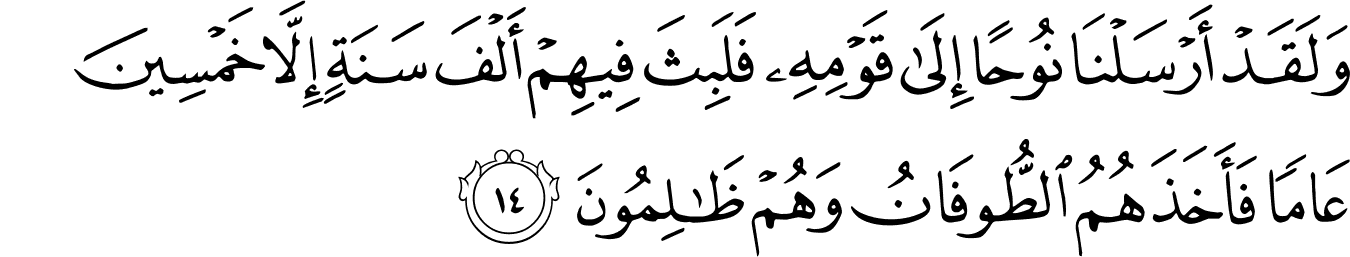 وَلَقَدۡ أَرۡسَلۡنَا نُوحًا إِلَىٰ قَوۡمِهِۦ فَلَبِثَ فِيهِمۡ أَلۡفَ سَنَةٍ إِلَّا خَمۡسِينَ
عَامٗا فَأَخَذَهُمُ ٱلطُّوفَانُ وَهُمۡ ظَٰلِمُونَ ١٤